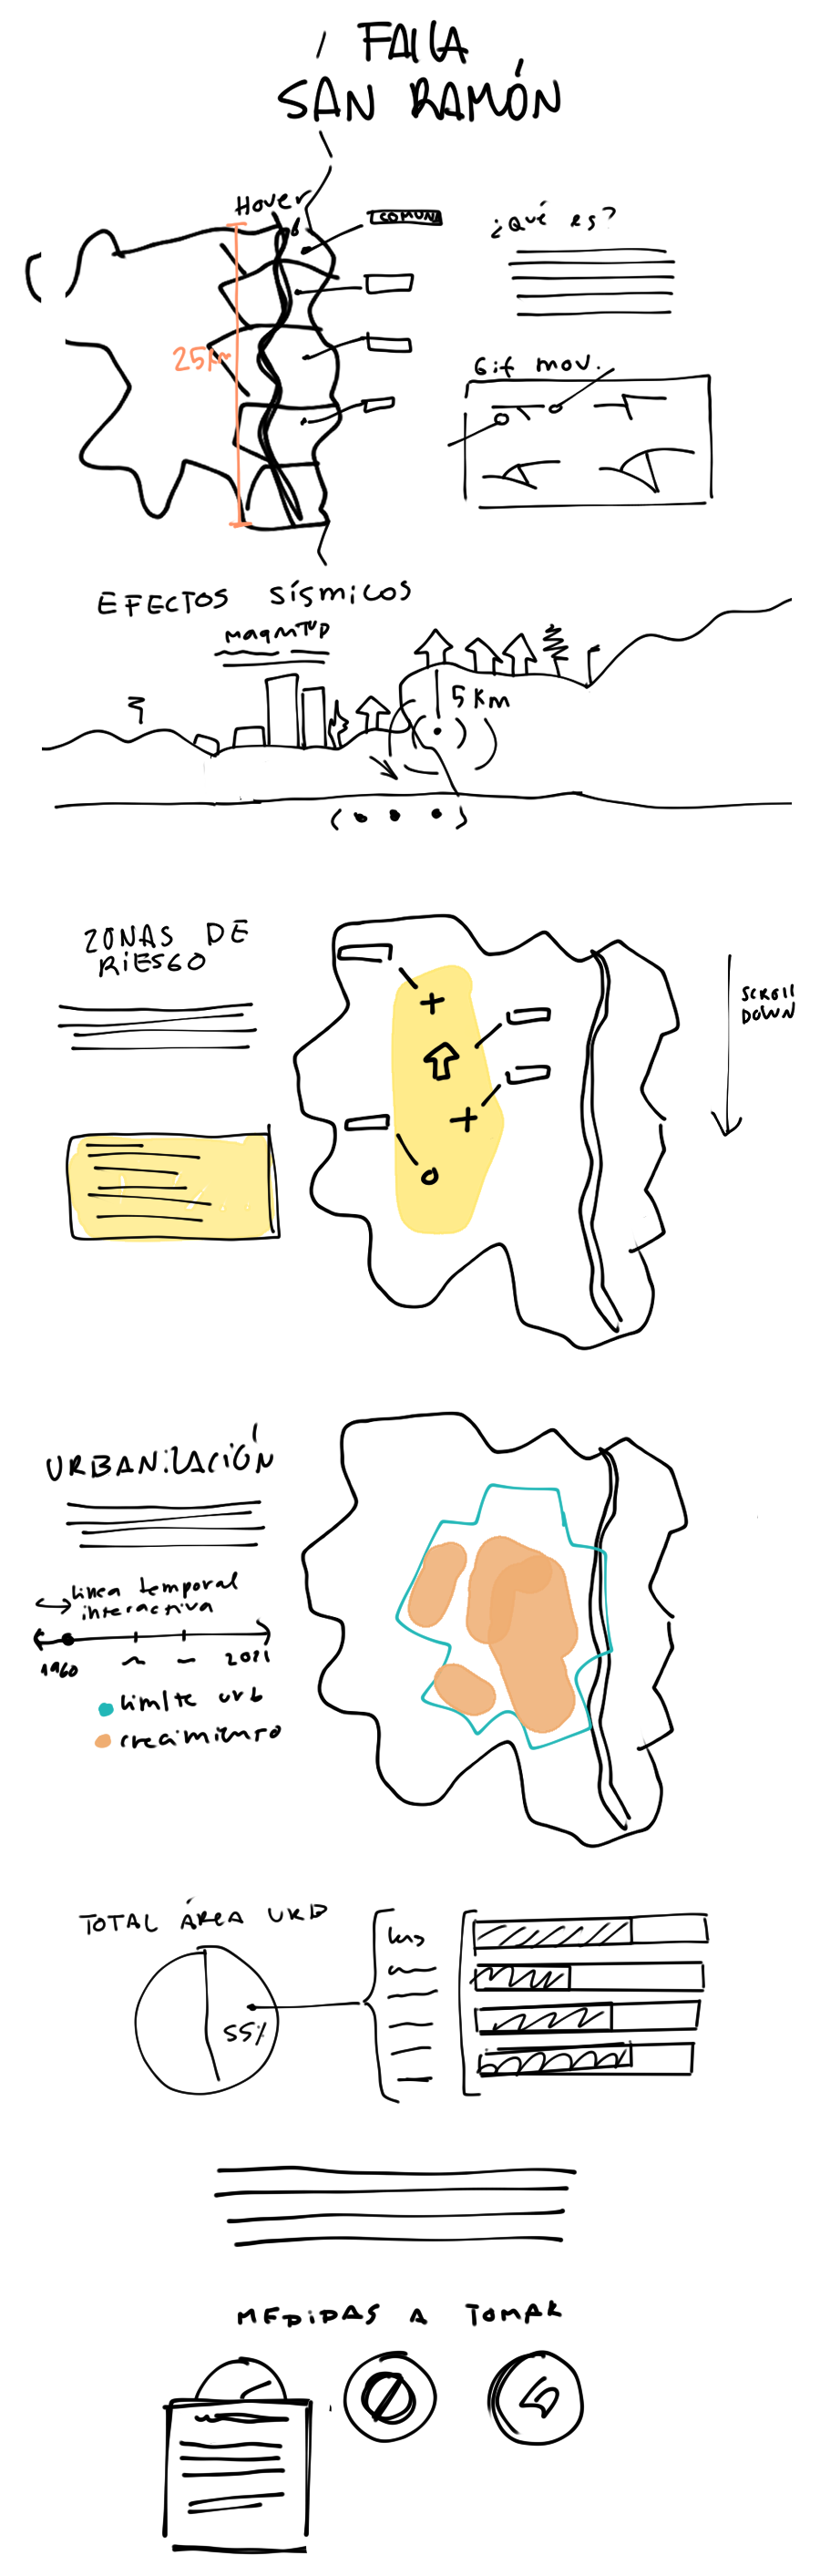 FALLA
SAN RAMÓN
Hover
COMUNA
¿Qué es?
25km
Gif mov.
EFECTOS SÍSMICOS
MAGNITUD
5 Km
ZONAS DE
RIESGO
SCROLL
DOWN
URBANIZACIÓN
Linea temporal
interactiva
1960
2021
limite urb
crecimiento
TOTAL ÁREA URB
55%
MEDIDAS A TOMAR